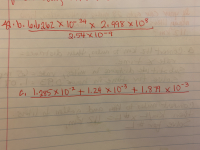 b. 6.6262 × 10⁻³⁴ × 2.998 × 10⁸
2.54 × 10⁻⁹
c. 1.285 × 10⁻² + 1.24 × 10⁻³ + 1.879 × 10⁻³